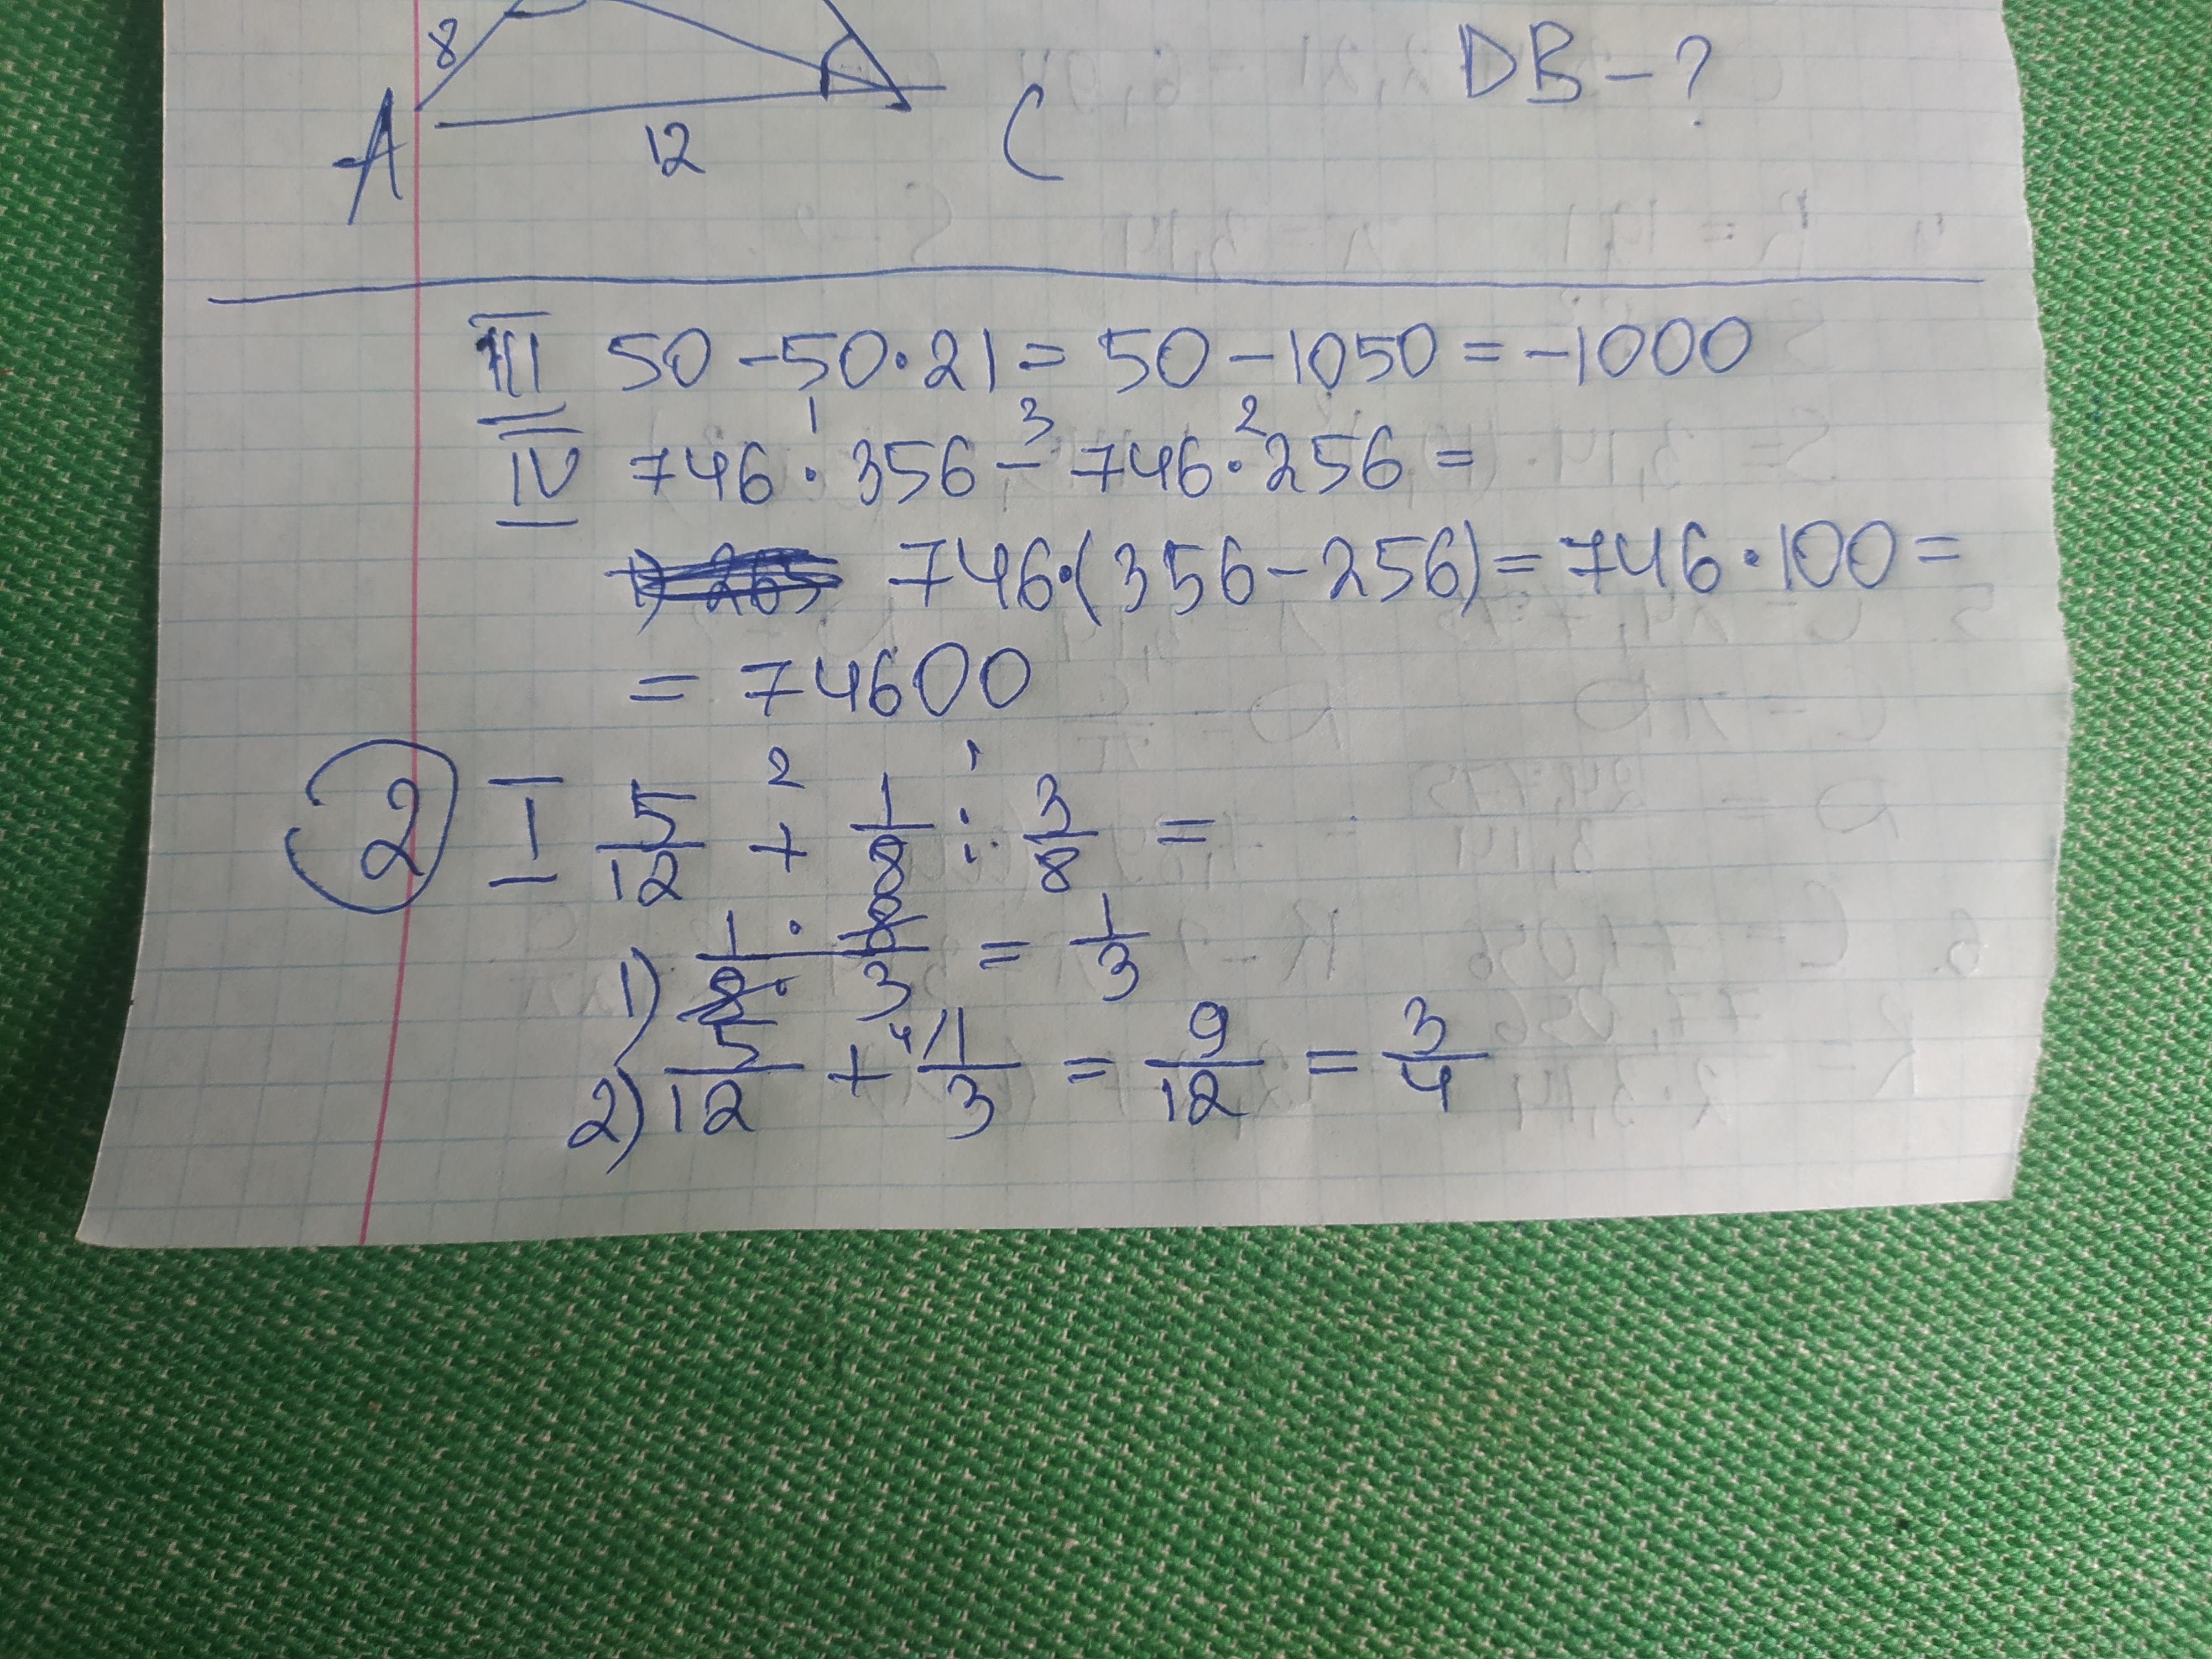 8
DB - ?
A 12 C
III 50 - 50 · 21 = 50 - 1050 = -1000
1 3 2
IV 746 · 356 - 746 · 256 =
746·(356 - 256) = 746 · 100 =
= 74600
2 1
② I 5/12 + 1/8 : 3/8 =
1) 1 · 8 / 8 · 3 = 1/3
2) 5/12 + 4/ 1/3 = 9/12 = 3/4